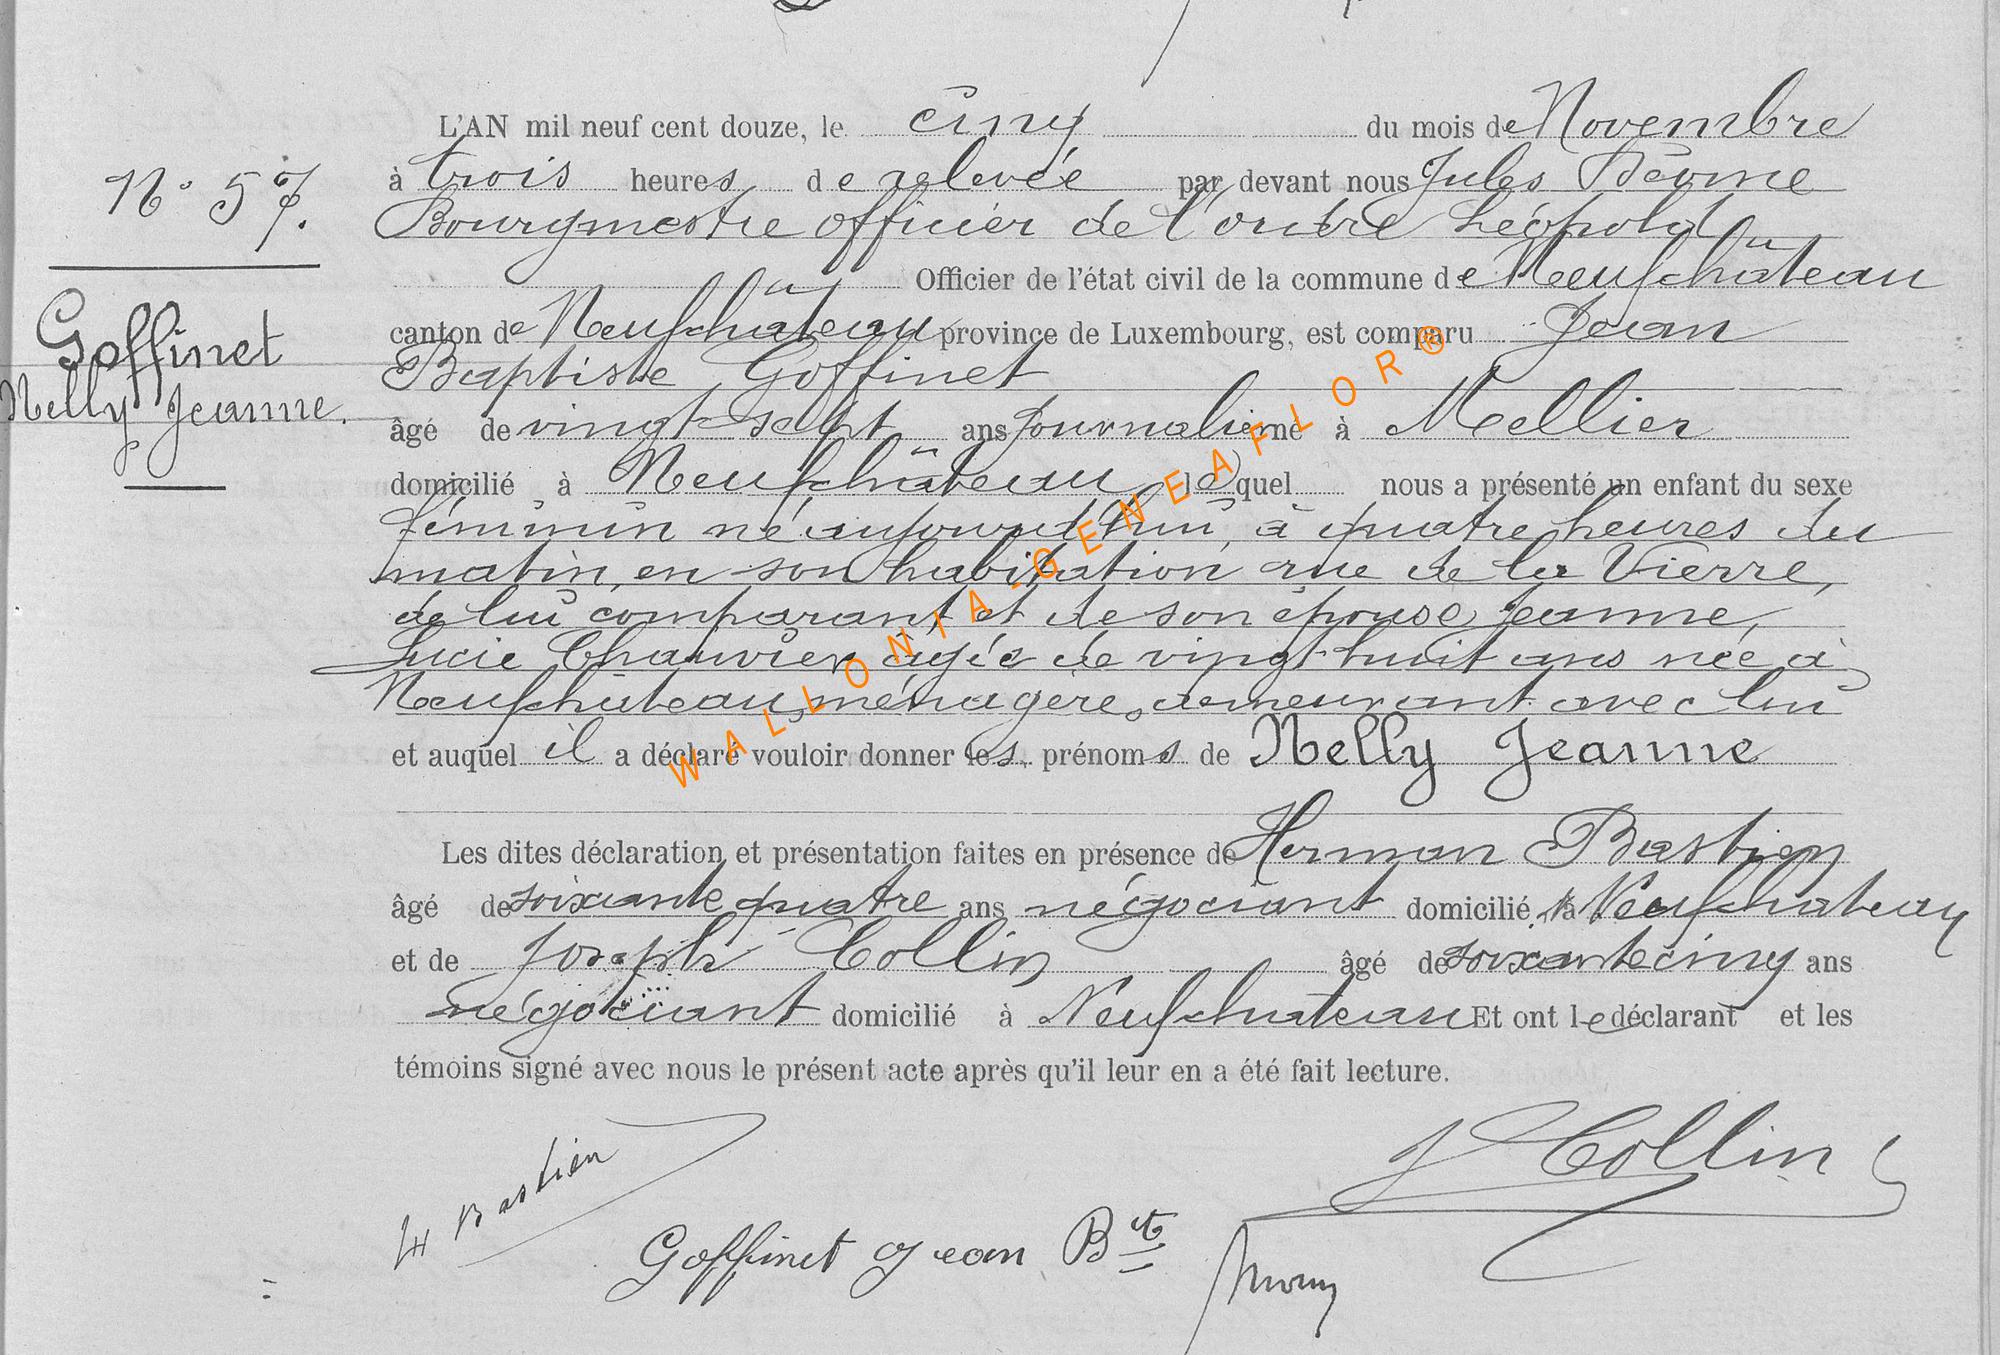 N° 57.
Goffinet
Nelly Jeanne.
L'AN mil neuf cent douze, le cinq du mois de Novembre
à trois heures de relevée par devant nous Jules
Bourgmestre officier de l'ordre Léopold
Officier de l'état civil de la commune de Neufchâteau
canton de Neufchâteau province de Luxembourg, est comparu Jean
Baptiste Goffinet
âgé de vingt-sept ans journalier né à Mellier
domicilié à Neufchâteau lequel nous a présenté un enfant du sexe
féminin né aujourd'hui, à quatre heures du
matin, en son habitation rue de la Vierre,
de lui comparant et de son épouse Jeanne,
Lucie Chauvier âgée de vingt-huit ans née à
Neufchâteau, ménagère, demeurant avec lui
et auquel il a déclaré vouloir donner les prénoms de Nelly Jeanne
Les dites déclaration et présentation faites en présence de Herman Bastien
âgé de soixante quatre ans négociant domicilié à Neufchateau
et de Joseph Collin âgé de soixante cinq ans
négociant domicilié à Neufchateau Et ont le déclarant et les
témoins signé avec nous le présent acte après qu'il leur en a été fait lecture.
H Bastien
J Collin
Goffinet Jean Bte
WALLONIA-GENEAFLOR®